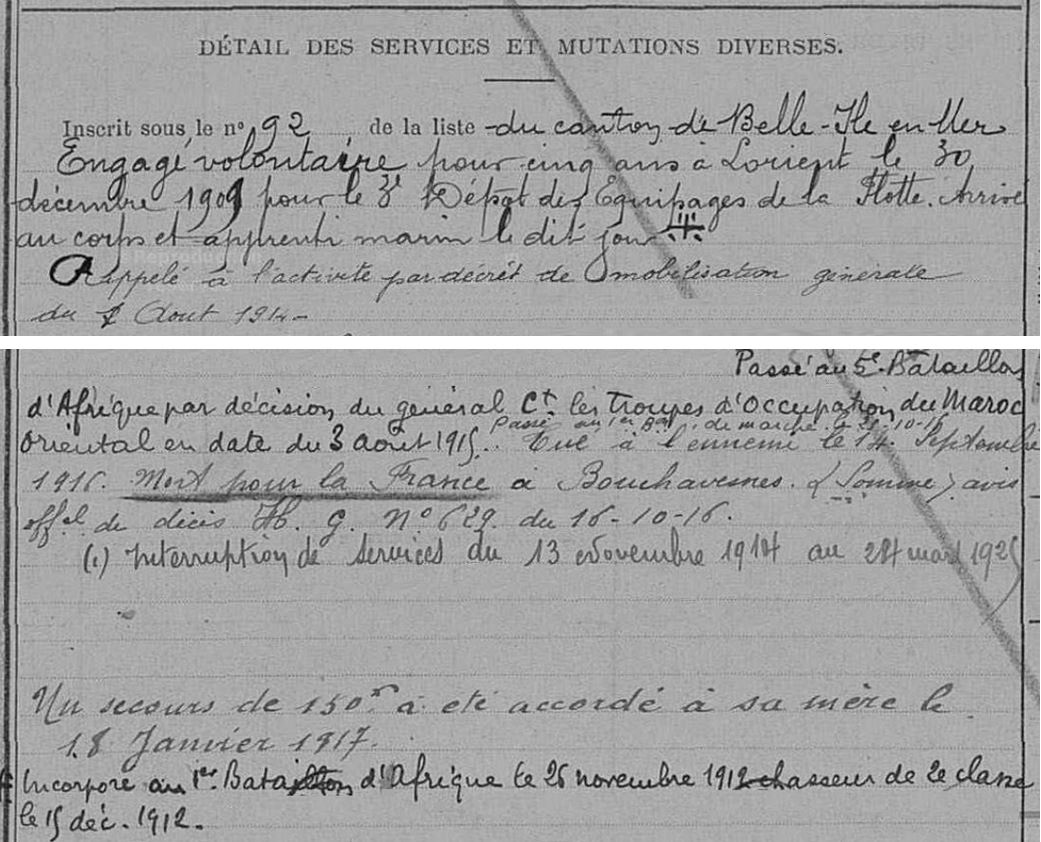 DÉTAIL DES SERVICES ET MUTATIONS DIVERSES.
Inscrit sous le n° 92 de la liste du canton de Belle-Ile en Mer
Engagé volontaire pour cinq ans à Lorient le 30
décembre 1909 pour le 3e Dépôt des Equipages de la Flotte. Arrivé
au corps et apprenti marin le dit jour
Rappelé à l'activité par décret de mobilisation générale
du 1 Aout 1914-
Passé au 5e Bataillon
d'Afrique par décision du général Ct les troupes d'Occupation du Maroc
Passé au 1er Bon de marche le 21-10-15
Oriental en date du 3 août 1915. Tué à l'ennemi le 14 Septembre
1916. Mort pour la France à Bouchavesnes. (Somme) avis
offel de décès G. N° 629. du 16-10-16.
(1) Interruption de services du 13 Novembre 1914 au 24 mars 1925
Un secours de 150f a été accordé à sa mère le
18 Janvier 1917.
Incorporé au 1er Bataillon d'Afrique le 26 novembre 1912 chasseur de 2e classe
le 15 déc. 1912.